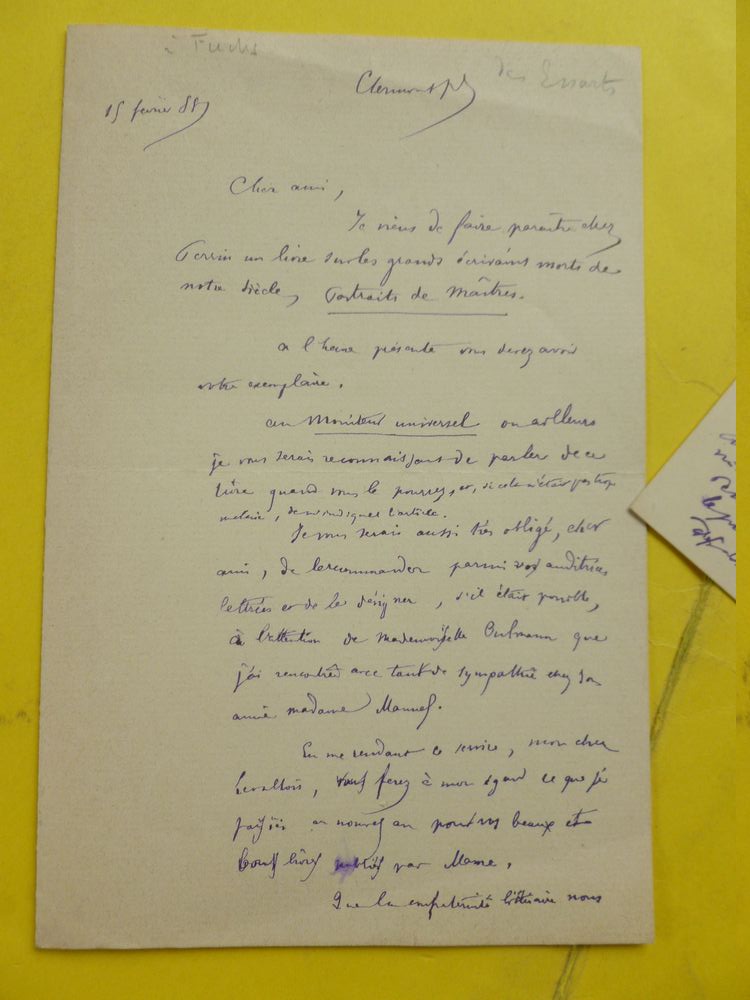 à Fuchs
des Essarts
Clermont-fd
15 février 88
Cher ami,
Je viens de faire paraître chez
Perrin un livre sur les grands écrivains morts de
notre siècle, Portraits de Maîtres.
A l'heure présente vous devez avoir
votre exemplaire.
Au Moniteur universel ou ailleurs
je vous serais reconnaissant de parler de ce
livre quand vous le pourrez, et, si cela n'était pas trop
, de m'indiquer l'article.
Je vous serais aussi très obligé, cher
ami, de le recommander parmi vos auditrices
lettrées et de le désigner, s'il était possible,
à l'attention de Mademoiselle que
j'ai rencontrée avec tant de sympathie chez son
amie madame Manuel.
En me rendant ce service, mon cher
Levallois, vous ferez à mon égard ce que je
faisais au nouvel an pour vos beaux et
bons livres publiés par Mame.
Que la confraternité littéraire nous